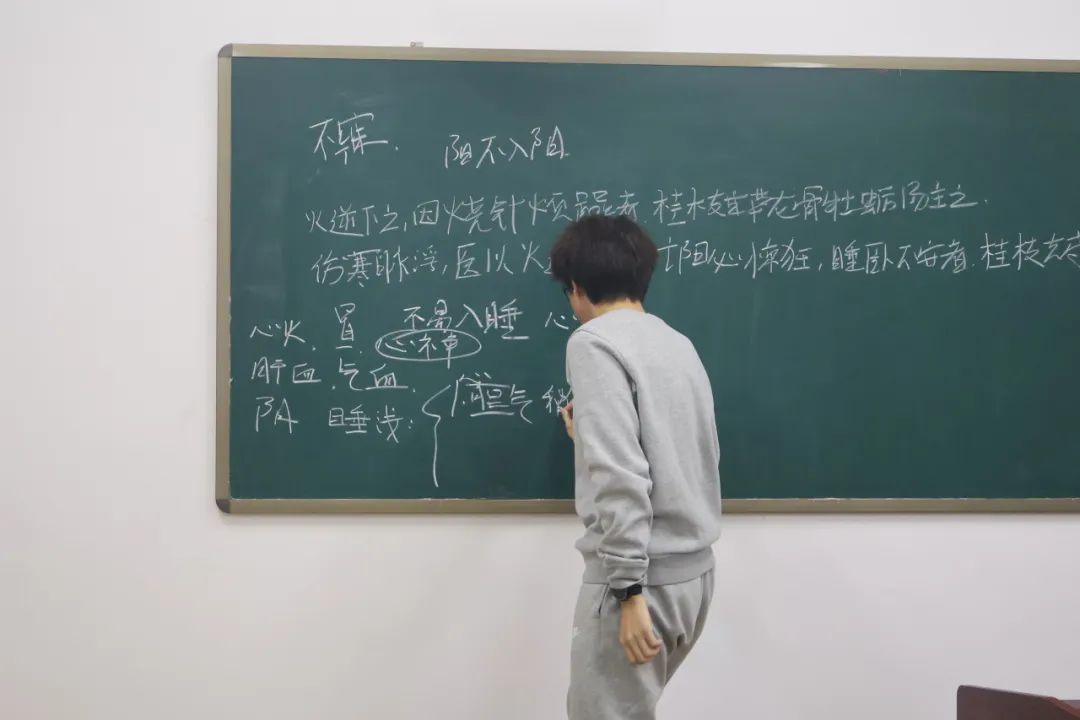 不寐. 阳不入阴
火逆下之,因烧针烦躁者,桂枝甘草龙骨牡蛎汤主之.
伤寒脉浮,医以火 亡阳必惊狂,睡卧不安者,桂枝去
心火. 胃. 不易入睡 心
心不
肝血. 气血.
阴 睡浅: 气